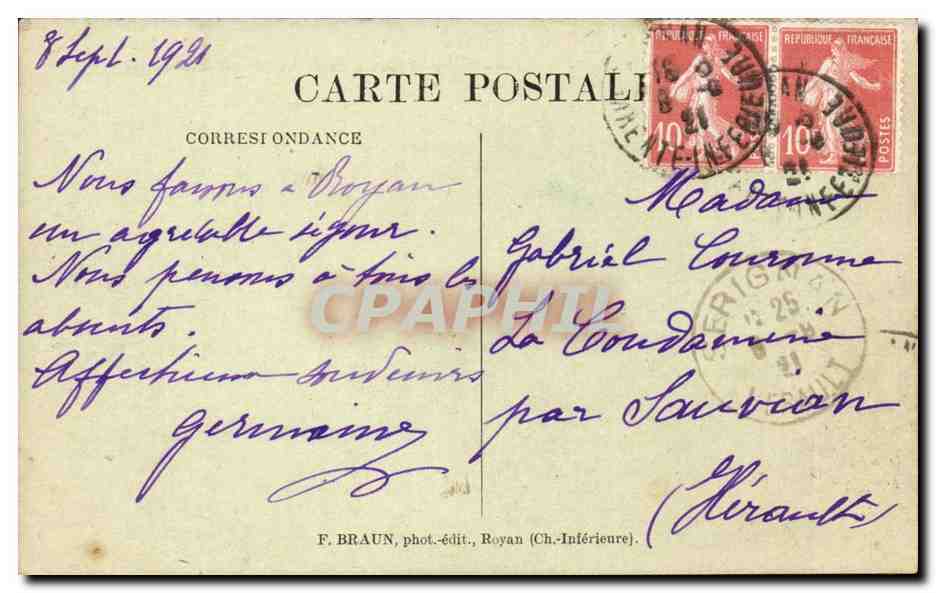 8 Sept. 1921
CARTE POSTALE
CORRESPONDANCE
Nous faisons à Royan
un agréable séjour.
Nous pensons à tous les
absents.
Affectueux souvenirs
Germaine
Madame
Gabriel Couronne
La Condamine
par Sauvian
(Hérault)
RÉPUBLIQUE FRANÇAISE
10
POSTES
RÉPUBLIQUE FRANÇAISE
10
POSTES
CHARENTE-INFERIEURE
SERIGNAN
25
21
HERAULT
CPAPHIL
F. BRAUN, phot.-édit., Royan (Ch.-Inférieure).